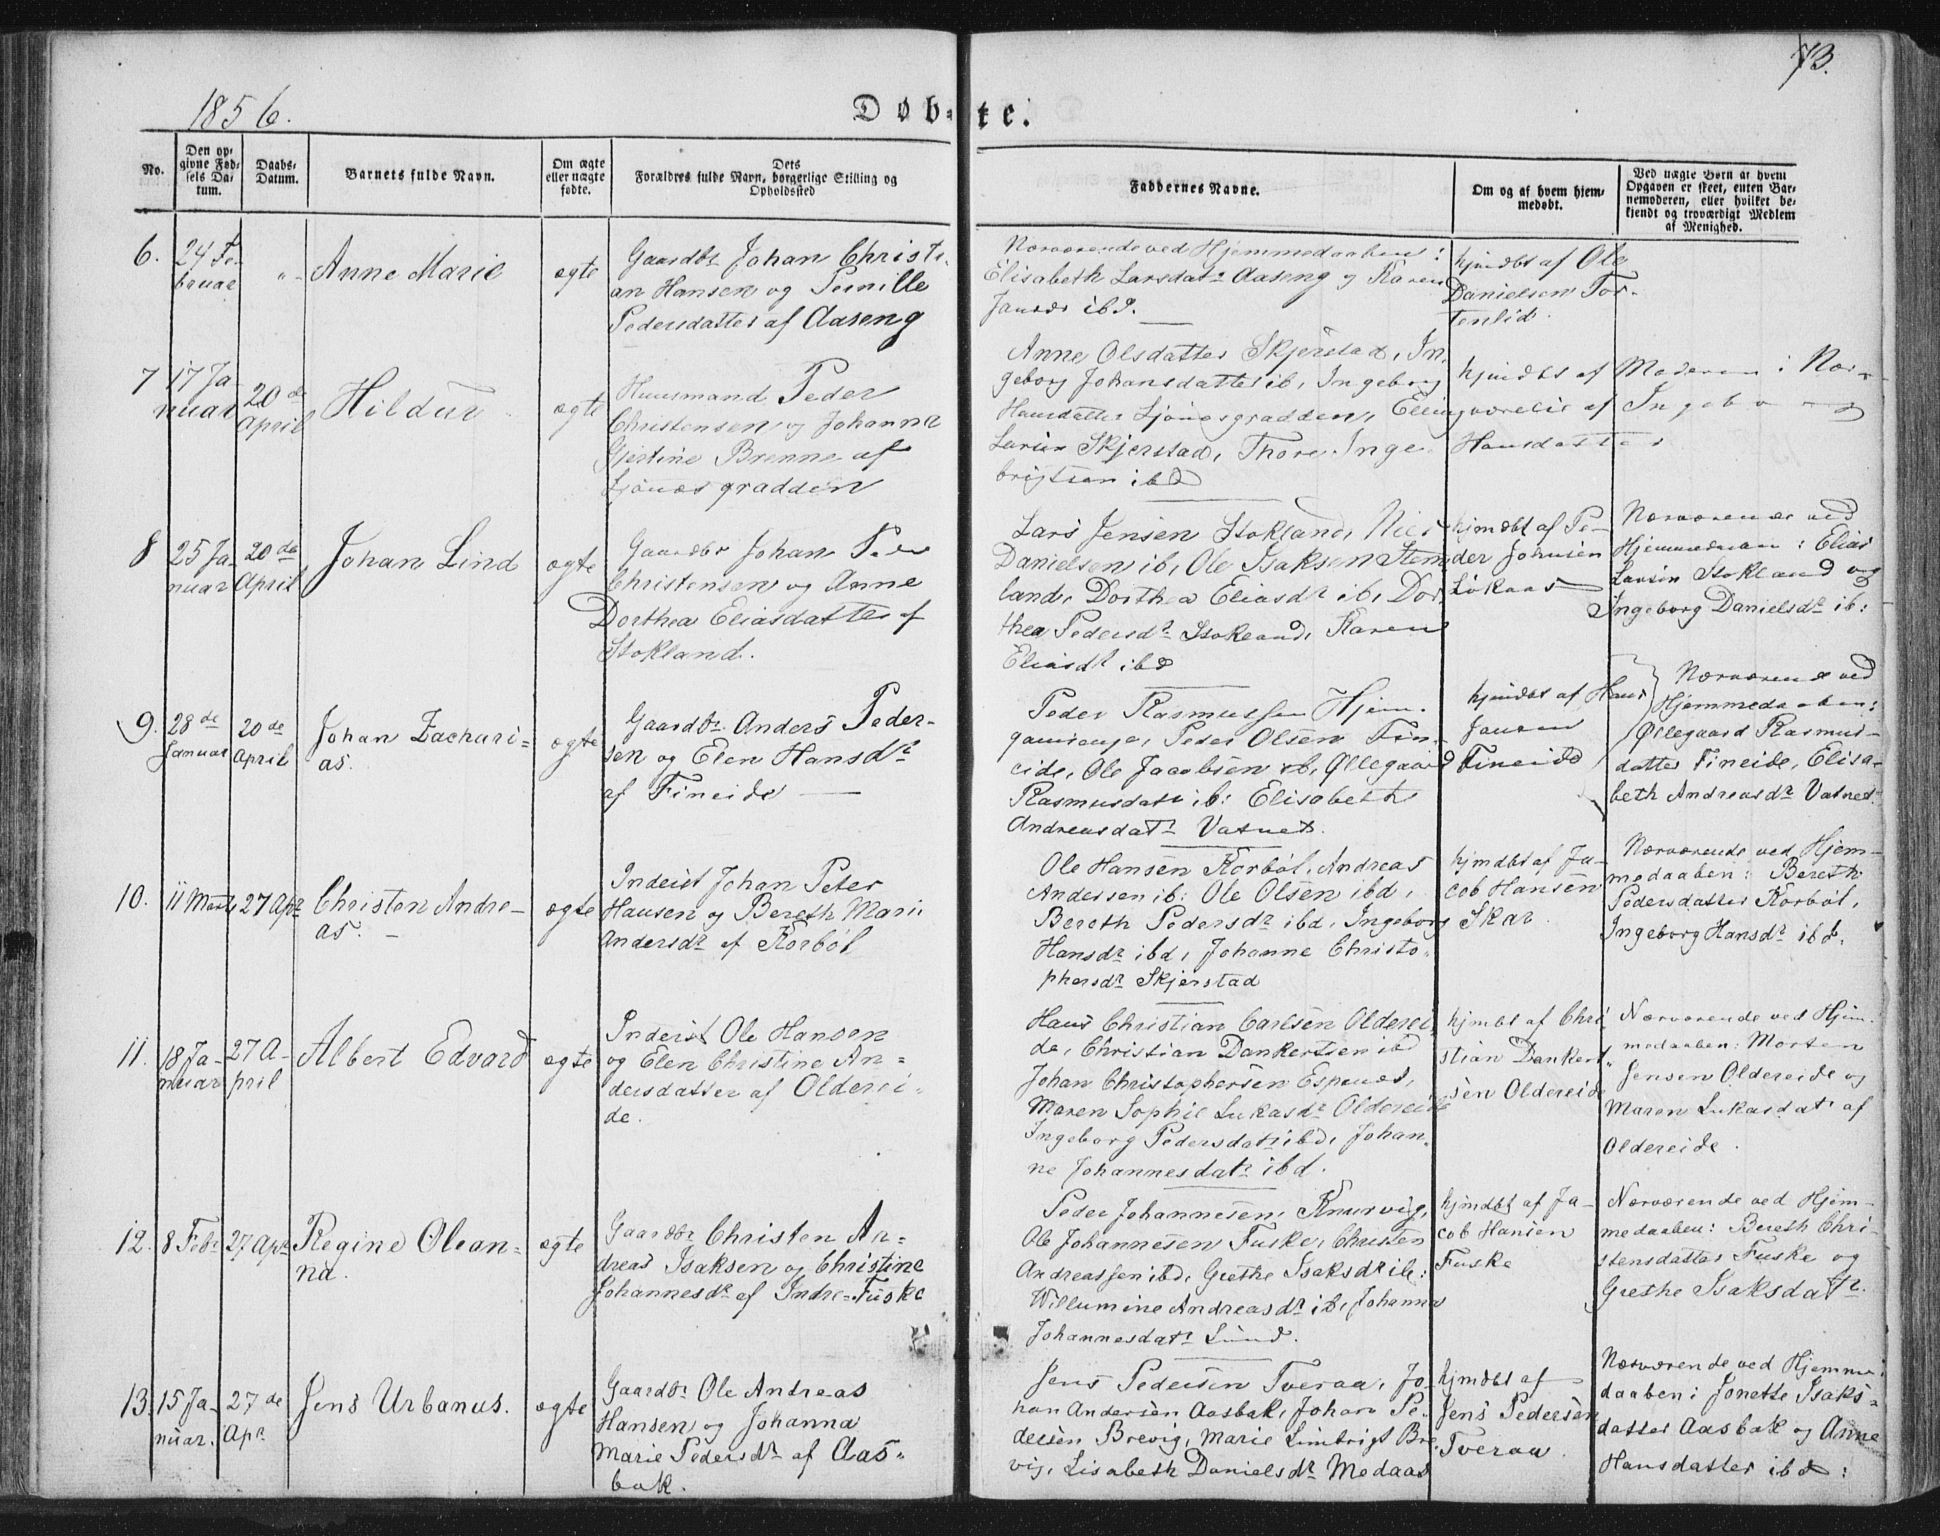 73.
1856.
Døbte.
No.
Den opgivne Fødsels Datum.
Daabs-Datum.
Barnets fulde Navn.
Om ægte eller uægte fødte.
Dets Forældres fulde Navn, borgerlige Stilling og Opholdssted
Faddernes Navne.
Om og af hvem hjemmedøbt.
Ved uægte Børn at hvem Opgaven er skeet, enten Barnemoderen, eller hvilket bekjendt og troværdigt Medlem af Menighed.
6.
24 Fe-
bruar
"
Anne Marie
ægte
Gaardbr Johan Christi-
an Hansen og Pernille
Pedersdatter af Aaseng
Nærværende ved Hjemmedaaben:
Elisabeth Larsdatr Aaseng og Karen
ibd.
hjmdbt af Ole
Danielsen For-
tenlid.
7
17 Ja-
nuar
20de
April
Hildur
ægte
Huusmand Peder
Christensen og Johanna
Gjertine Brenne af
Ljønesgradden
Anne Olsdatter Skjerstad, In-
geborg Johansdatter ib, Ingeborg
Hansdatter Ljønesgradden, Elling
Larsen Skjerstad, Thore Inge-
brigtsen ibd
hjmdbt af Moderen i Nær-
værelse af Ingeborg
Hansdatter
8
25 Ja-
nuar
20de
April
Johan Lind
ægte
Gaardbr Johan Peter
Christensen og Anne
Dorthea Eliasdatter af
Stokland.
Lars Jensen Stokland, Niels
Danielsen ib, Ole Isaksen Stem-
land, Dorthea Eliasdr ib, Dor-
thea Pedersdr Stokland, Karen
Eliasdr ibd
hjmdbt af Pe-
der Johnsen
Løkaas
Nærværende ved
Hjemmedaaben: Elias
Larsen Stokland og
Ingeborg Danielsdr ib:
9.
28de
Januar
20de
April
Johan Zachari-
as.
ægte
Gaardbr Anders Peder-
sen og Elen Hansdr
af Fineide
Peder Rasmussen Hjem-
gamenge, Peder Olsen Fin-
eide, Ole Jacobsen ib, Øllegaard
Rasmusdatr ib: Elisabeth
Andreasdatr Vatnet.
hjmdbt af Hans
Jansen
Fineide
Nærværende ved
Hjemmedaaben:
Øllegaard Rasmus-
datter Fineide, Elisa-
beth Andreasdr Vatnet.
10.
11 Marts
27 Apr
Christen Andre-
as.
ægte
Inderst Johan Peter
Hansen og Bereth Marie
Andersdr af Korbøl
Ole Hansen Korbøl, Andreas
Andersen ib: Ole Olsen ibd,
Bereth Pedersdr ibd, Ingeborg
Hansdr ibd, Johanne Christo-
phersdr Skjerstad
hjmdbt af Ja-
cob Hansen
Skar
Nærværende ved Hjem-
medaaben: Bereth
Pedersdatter Korbøl,
Ingeborg Hansdr ibd.
11.
18 Ja-
nuar
27 A-
pril
Albert Edvard
ægte
Inderst Ole Hansen
og Elen Christine An-
dersdatter af Olderei-
de.
Hans Christian Carlsen Olderei-
de, Christian Dankertsen ibd
Johan Christophersen Espenæs,
Maren Sophie Lukasdr Oldereide
Ingeborg Pedersdatr ibd, Johan-
ne Johannesdatr ibd.
hjmbt af Chri
stian Dankert-
sen Oldereide
Nærværende ved Hjem-
medaaben: Morten
Jensen Oldereide og
Maren Lukasdatr af
Oldereide.
12.
8 Febr
27 Apr
Regine Olean-
na.
ægte
Gaardbr Christen An-
dreas Isaksen og Christine
Johannesdr af Indre-Fuske
Peder Johannesen, Knarvig,
Ole Johannesen Fuske, Christen
Andreassen ibd, Grethe Isaksdr ib:
Willumine Andreasdr ib, Johanna
Johannesdatr Lund.
hjmdbt af Ja-
cob Hansen
Fuske
Nærværende ved Hjem-
medaaben: Bereth Chri-
stensdatter Fuske og
Grethe Isaksdatr.
13.
15 Ja-
nuar.
27de
Apr
Jens Urbanus.
ægte
Gaardbr Ole Andreas
Hansen og Johanna
Marie Pedersdr af Aas-
bak.
Jens Pedersen Tveraa, Jo-
han Andersen Aasbak, Johan Pe-
dersen Brevig, Marie Limbrigt Bre-
vig, Lisabeth Danielsdr Medaas
hjmdbt af
Jens Pedersen
Tveraa
Nærværende ved Hjemme-
daaben: Jonette Isaks-
datter Aasbak og Anne
Hansdatter ibd: